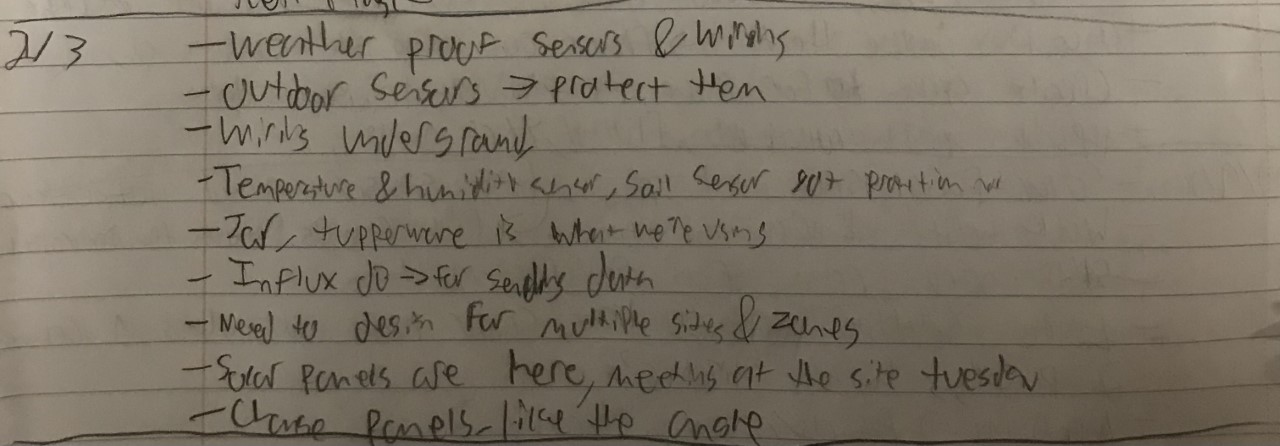 2/3 - weather proof sensors & wiring
- outdoor sensors → protect them
- wiring underground
- Temperature & humidity sensor, soil sensor got
- Jar, tupperware is what we're using
- Influx db → for sending data
- Need to design for multiple sites & zones
- Solar panels are here, meeting at the site tuesday
- panels - like the angle